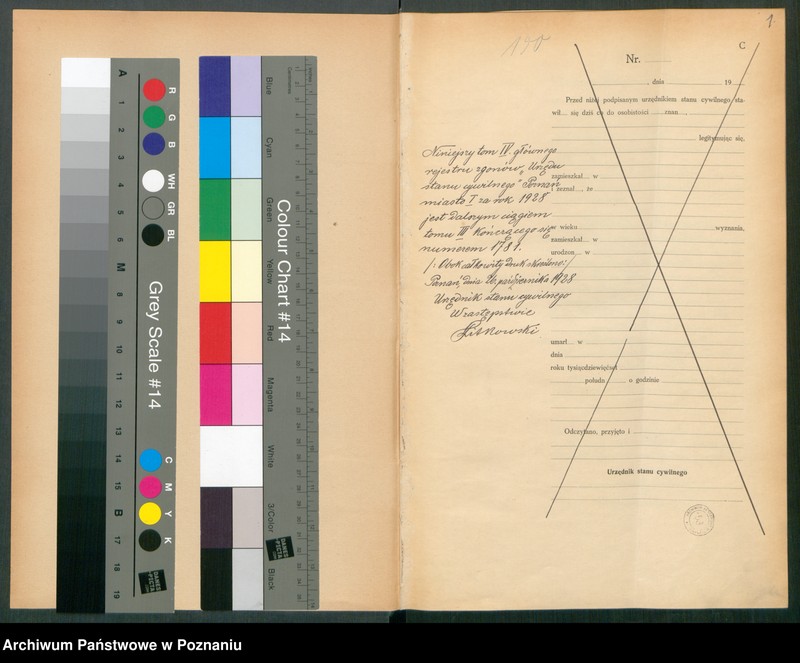 A
1
2
3
4
5
6
M
8
9
10
11
12
13
14
15
B
17
18
19
R
G
B
WH
GR
BL
Grey Scale #14
C
M
Y
K
DANES
PICTA
Blue
Cyan
Green
Yellow
Red
Magenta
White
3/Color
Black
Colour Chart #14
DANES
PICTA
1
190
C
Nr.
, dnia 19
Przed niżej podpisanym urzędnikiem stanu cywilnego sta-
wił się dziś co do osobistości znan
legitymując się,
Niniejszy tom IV. głównego
rejestru zgonów „Urzędu
zamieszkał w
stanu cywilnego" Poznań
i zeznał , że
miasto I za rok 1928
jest dalszym ciągiem
tomu III kończącego się
w wieku wyznania,
numerem 1781.
zamieszkał w
urodzon w
/: Obok całkowity druk skreślono :/
Poznań, dnia 26. października 1928
Urzędnik stanu cywilnego
W zastępstwie
umarł w
dnia
roku tysiącdziewięćset
południu o godzinie
Odczytano, przyjęto i
Urzędnik stanu cywilnego
Archiwum Państwowe w Poznaniu